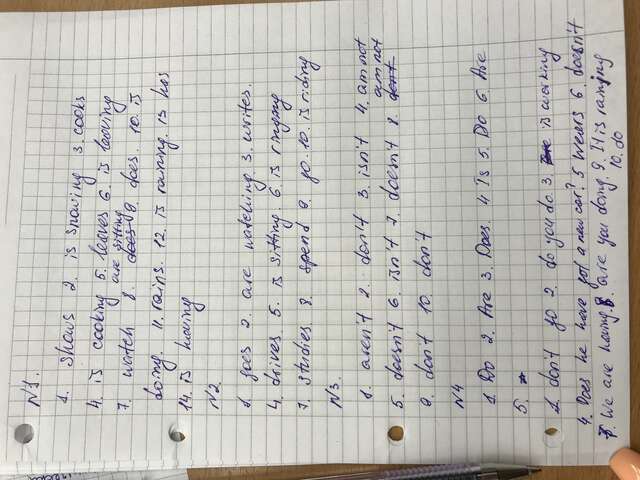 N1.
1. shows 2. is snowing 3. cooks
4. is cooking 5. leaves 6. is leaving
are sitting
7. watch 8. does 9. does. 10. is
doing. 11. rains. 12. is raining. 13. has
14. is having
N2
1. goes 2. are watching 3. writes.
4. drives 5. is sitting 6. is ringing
7. studies 8. spend 9. go 10. is riding
N3.
1. aren't 2. don't 3. isn't 4. am not
am not
5. doesn't 6. isn't 7. doesn't 8. don't
9. don't 10. don't
N4
1. Do 2. Are 3. Does. 4 Is 5. Do 6. Are
5.
1. don't go 2. do you do 3. is working
4. Does he have got a new car? 5 wears 6. doesn't
7. We are having. 8. are you doing 9. It is raining
10. do